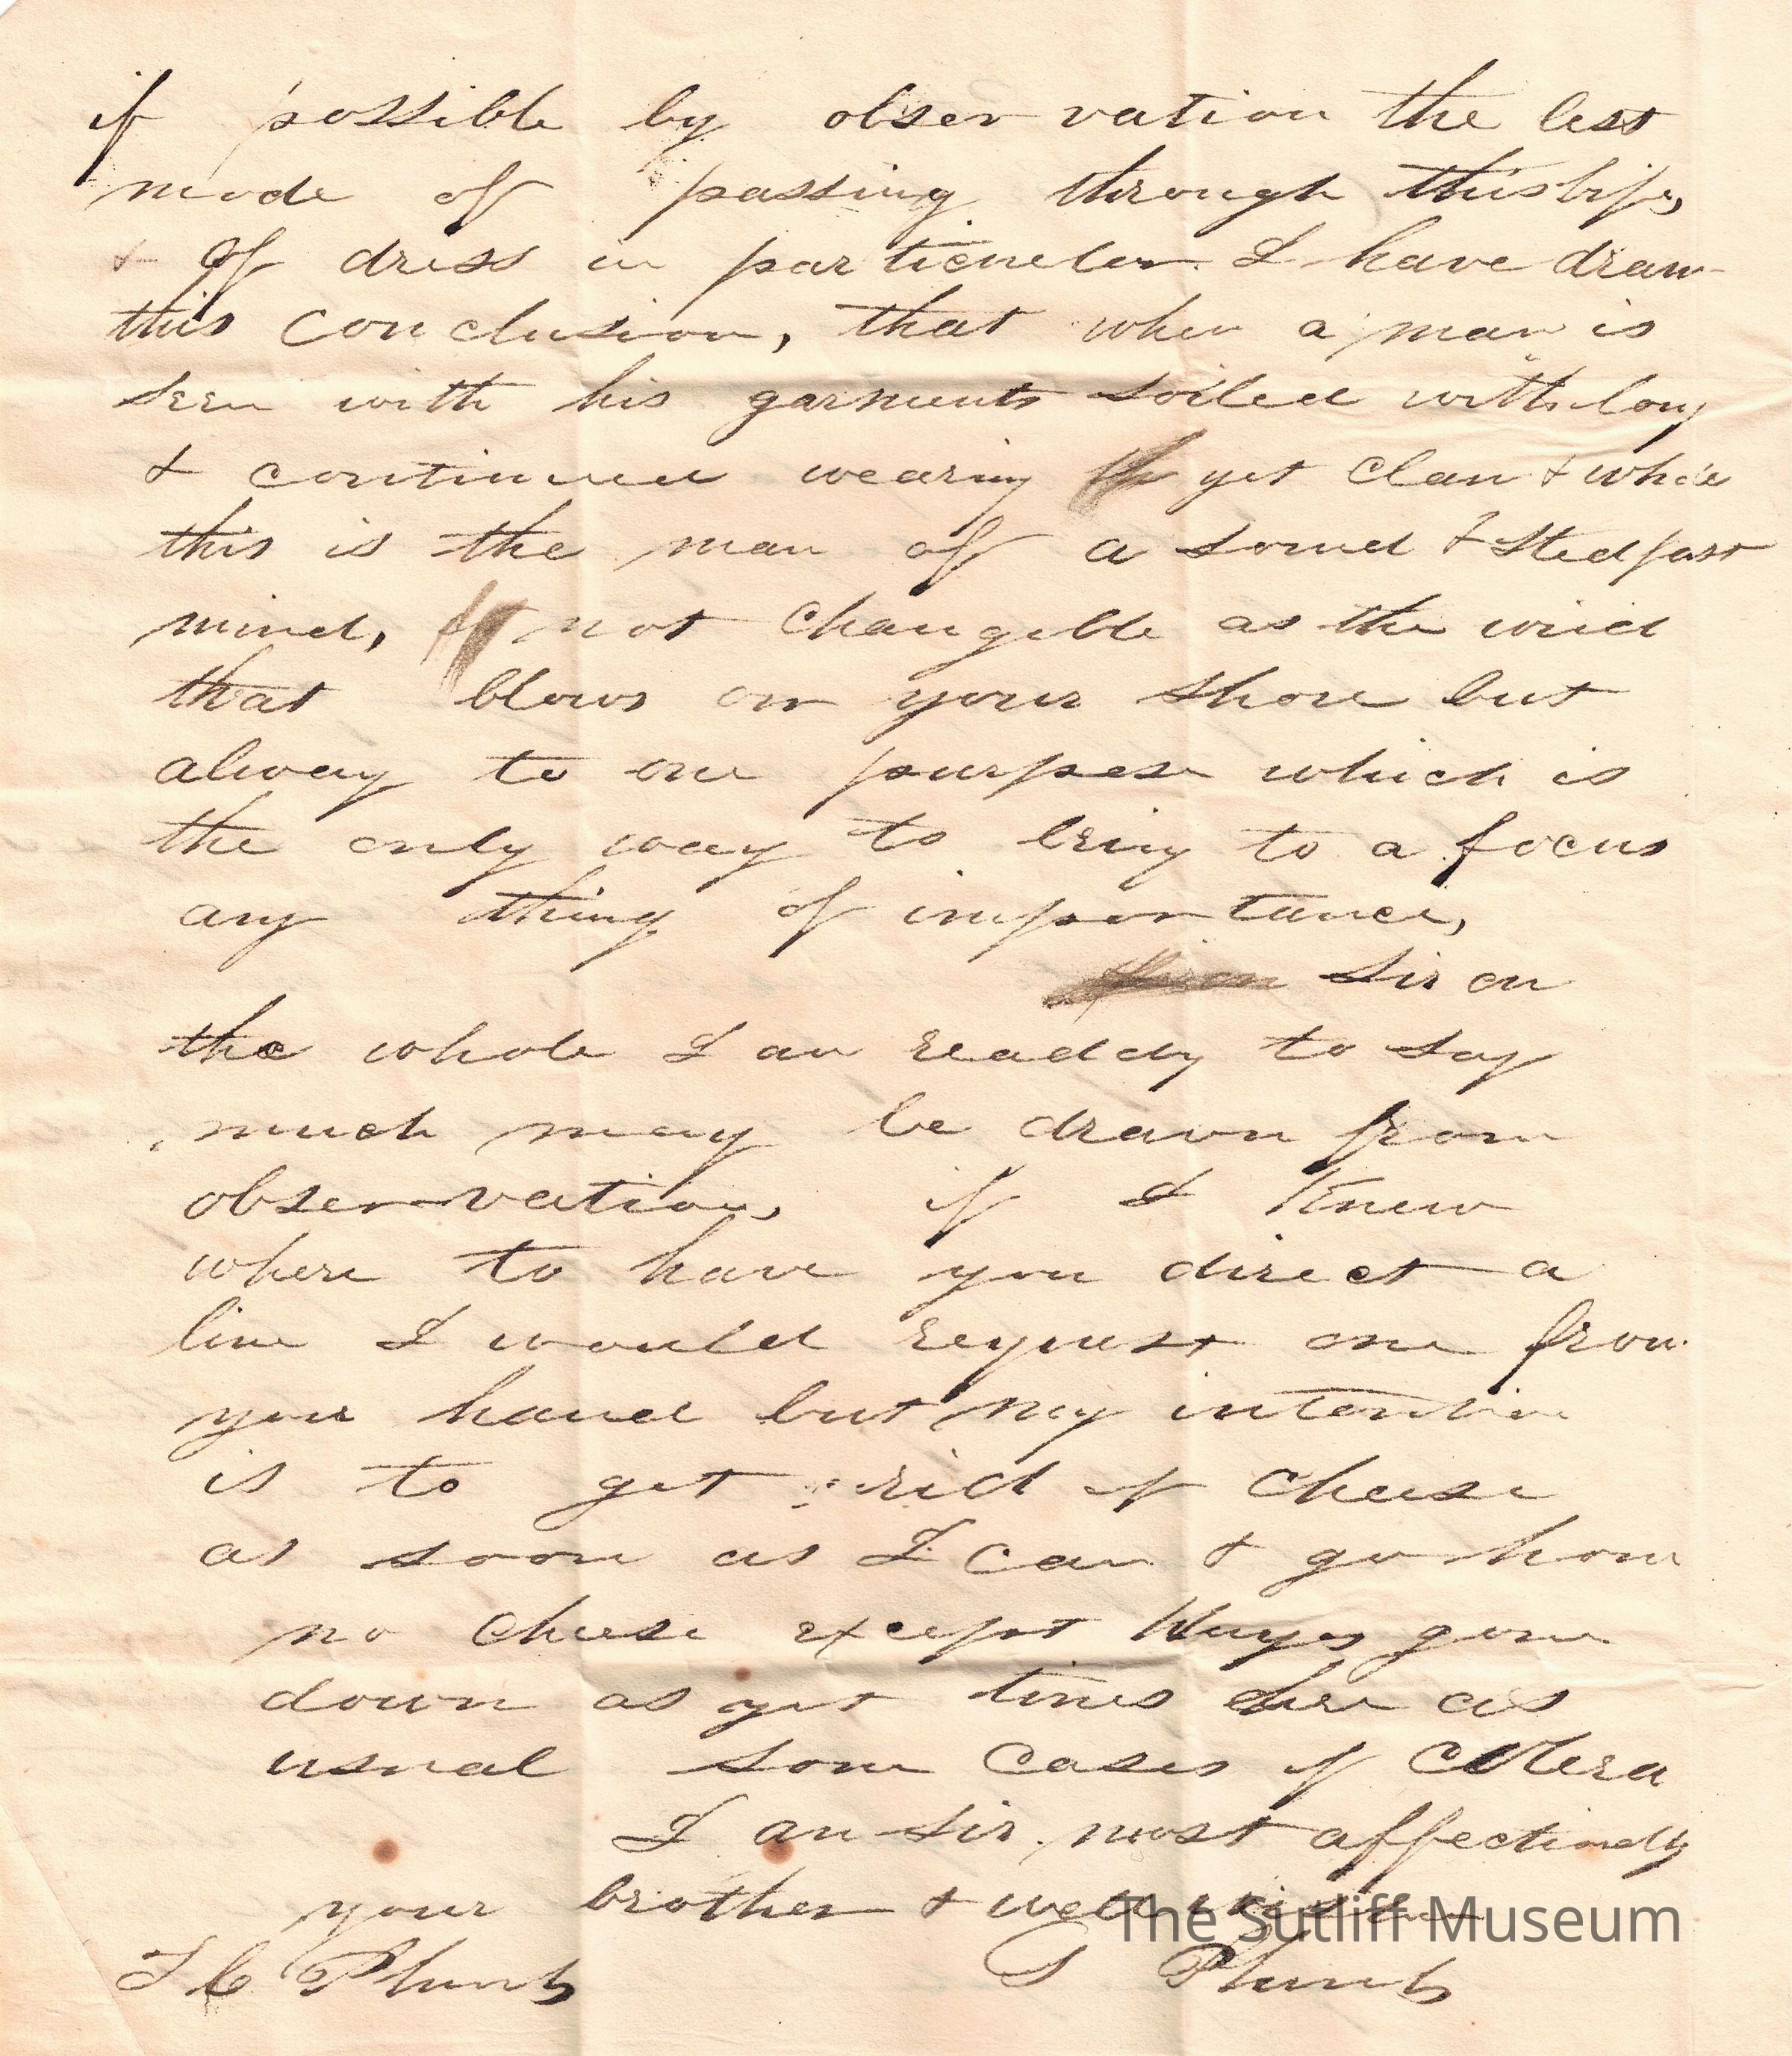 if possible by observation the best
mode of passing through this life,
& of dress in particuelar I have drawn
this conclusion, that when a man is
seen with his garments soiled with long
& continued wearing yet clean & whole
this is the man of a sound & stedfast
mind, not changeble as the wind
that blows on your shore but
alway to one purpose which is
the only way to bring to a focus
any thing of importance,
Sir on
the whole I am readdy to say
much may be drawn from
observation, if I Knew
where to have you direct a
line I would request one from
your hand but my intention
is to get rid of cheese
as soon as I can & go home
no cheese except Hayes gone
down as yet times here as
usual some cases of Colera
I am sir most affectionatly
your brother & well wisher
T C Plumb S Plumb
The Sutliff Museum